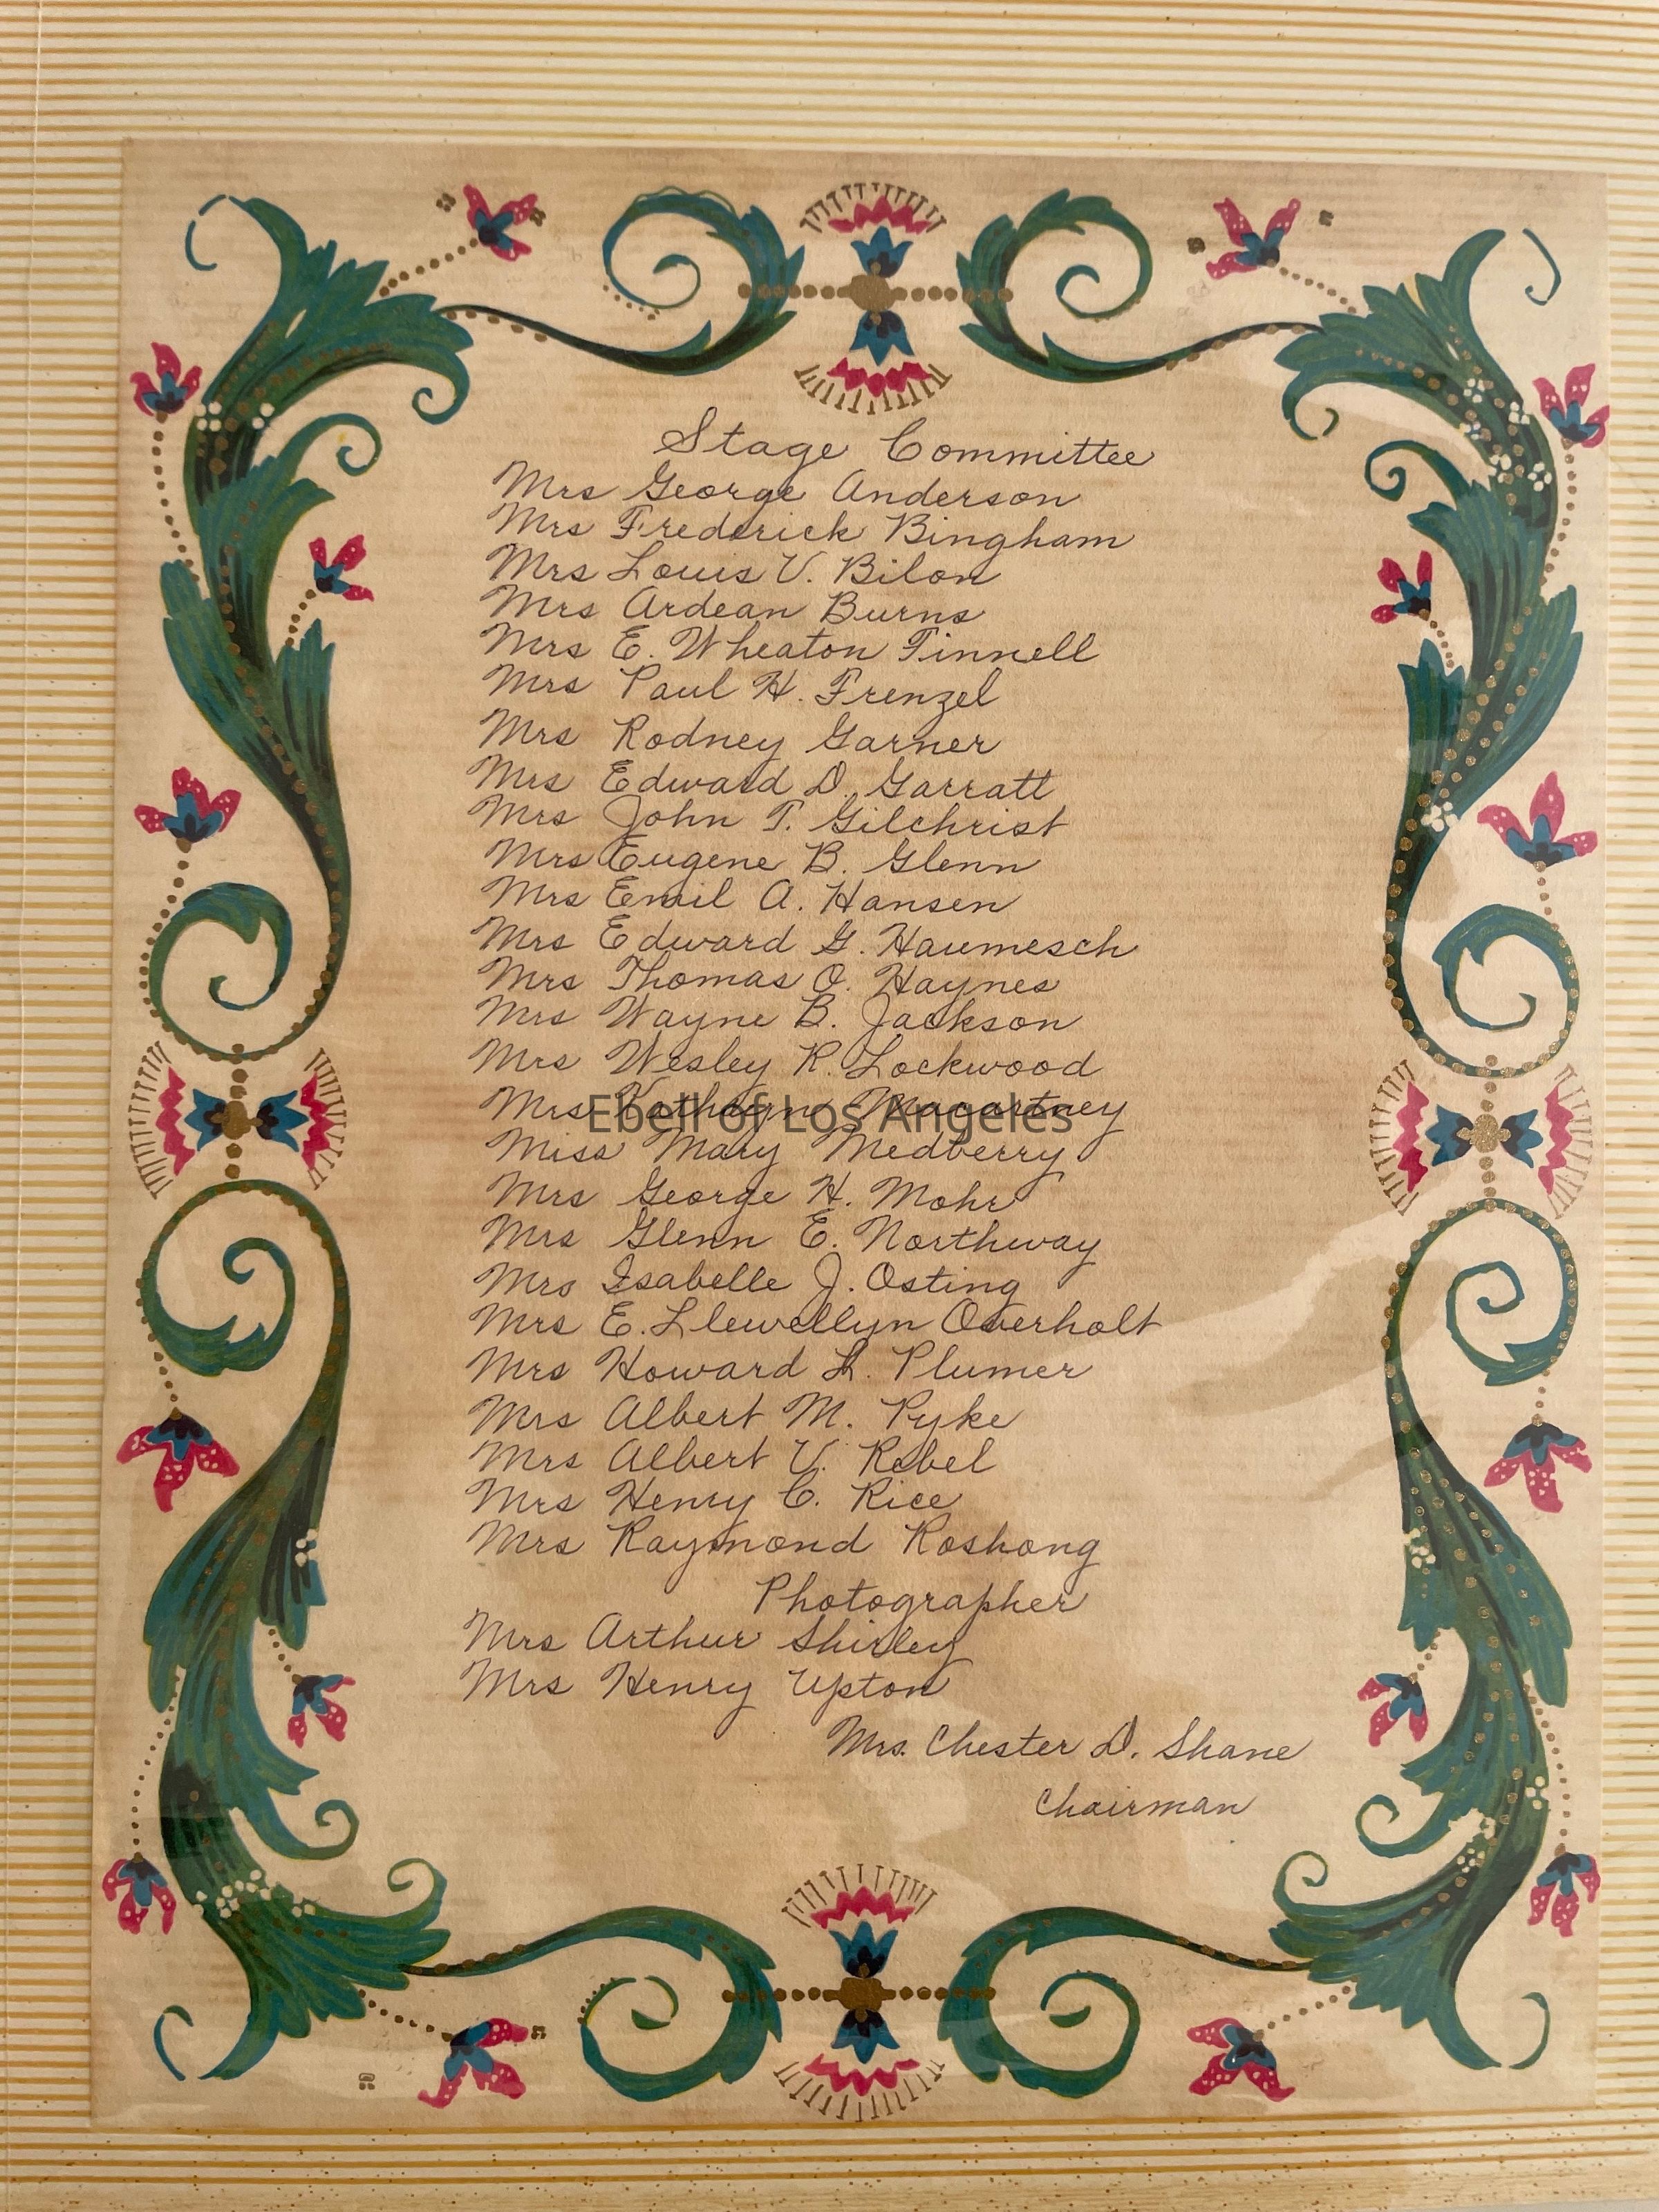 Stage Committee
Mrs George Anderson
Mrs Frederick Bingham
Mrs Louis V. Bilon
Mrs Ardean Burns
Mrs E. Wheaton Finnell
Mrs Paul H. Frenzel
Mrs Rodney Garner
Mrs Edward D. Garratt
Mrs John T. Gilchrist
Mrs Eugene B. Glenn
Mrs Emil A. Hansen
Mrs Edward G. Haumesch
Mrs Thomas O. Haynes
Mrs Wayne B. Jackson
Mrs Wesley R. Lockwood
Mrs Kathryne Macartney
Ebell of Los Angeles
Miss Mary Medberry
Mrs George H. Mohr
Mrs Glenn E. Northway
Mrs Isabelle J. Osting
Mrs E. Llewellyn Overholt
Mrs Howard L. Plumer
Mrs Albert M. Pyke
Mrs Albert V. Rebel
Mrs Henry C. Rice
Mrs Raymond Roshong
Photographer
Mrs Arthur Shirley
Mrs Henry Upton
Mrs. Chester D. Shane
Chairman